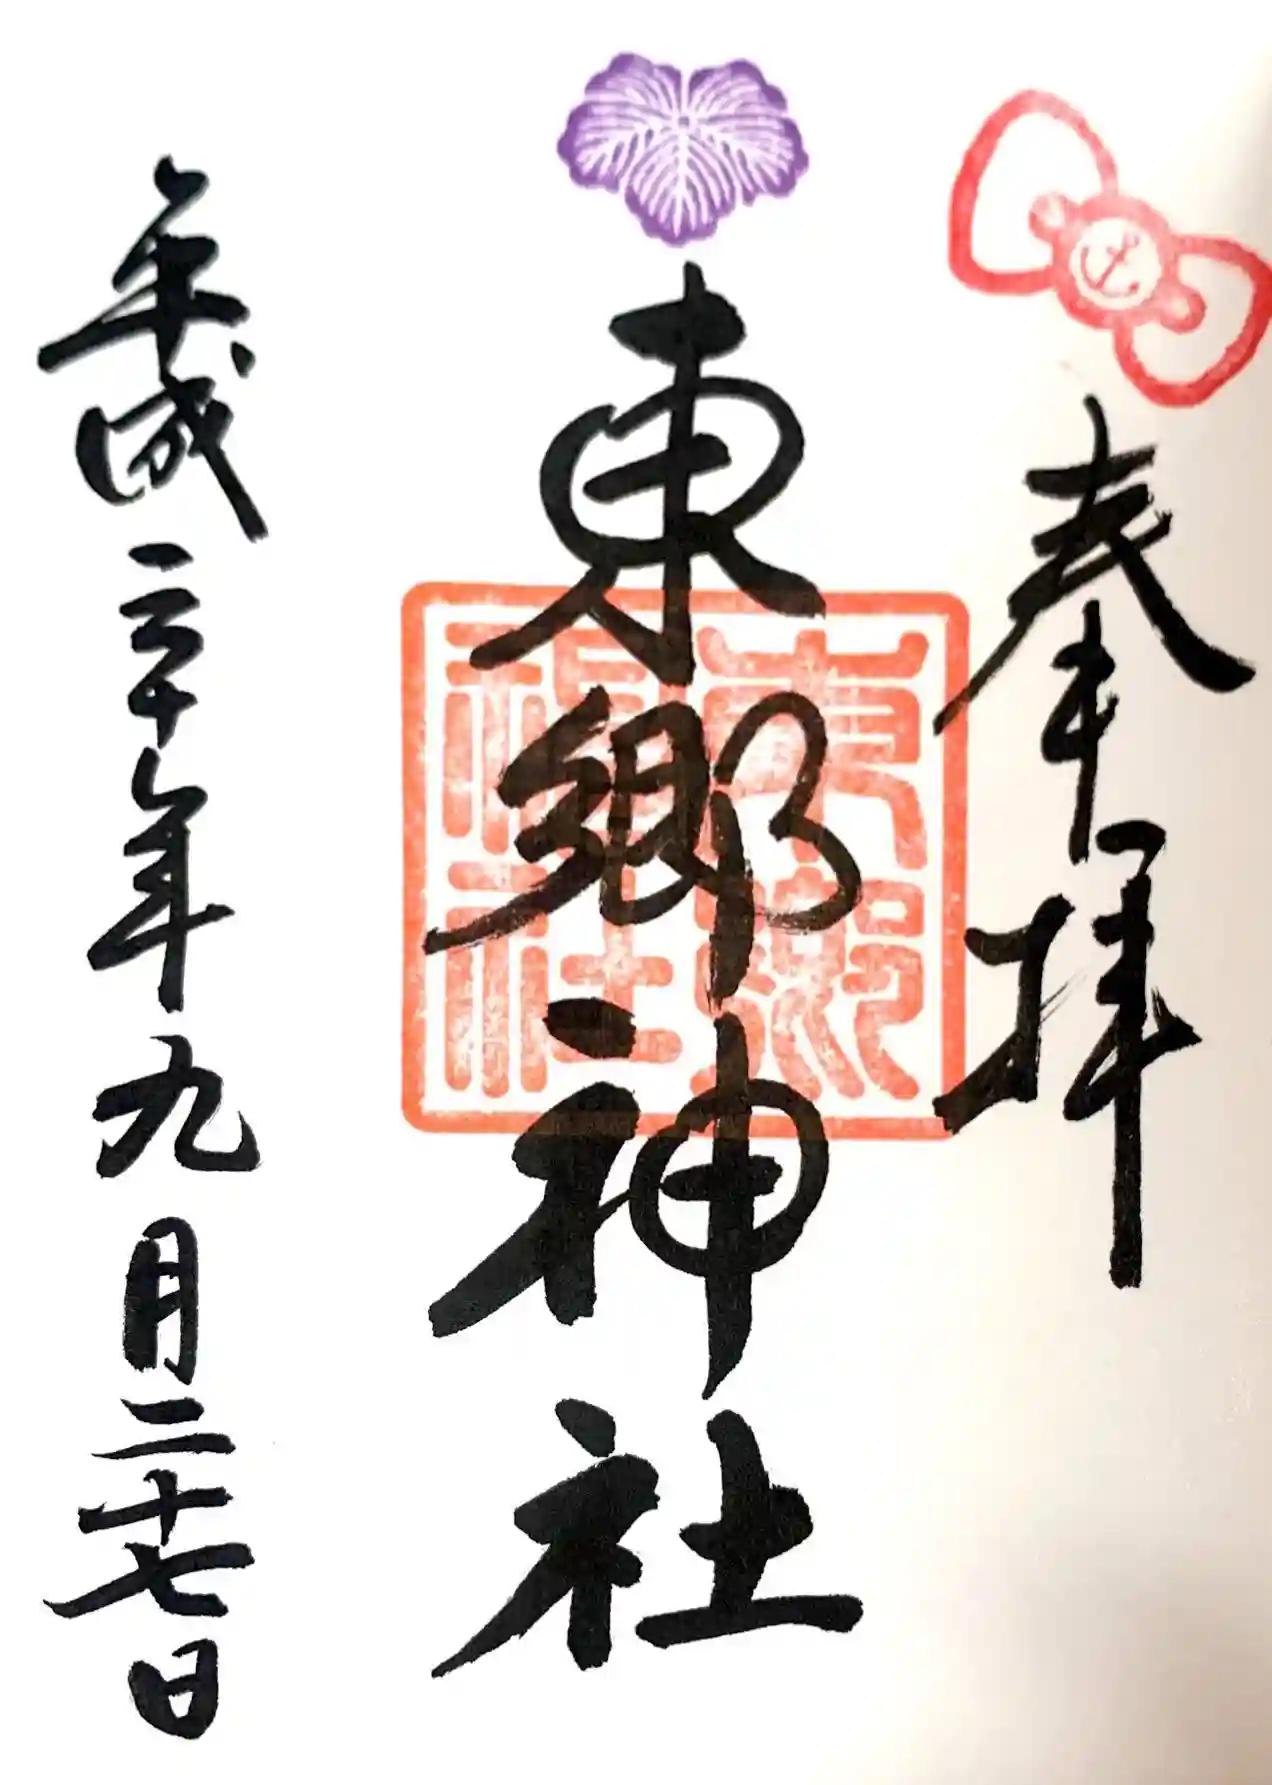 奉拝
東郷神社
東郷神社
平成三十年九月二十七日